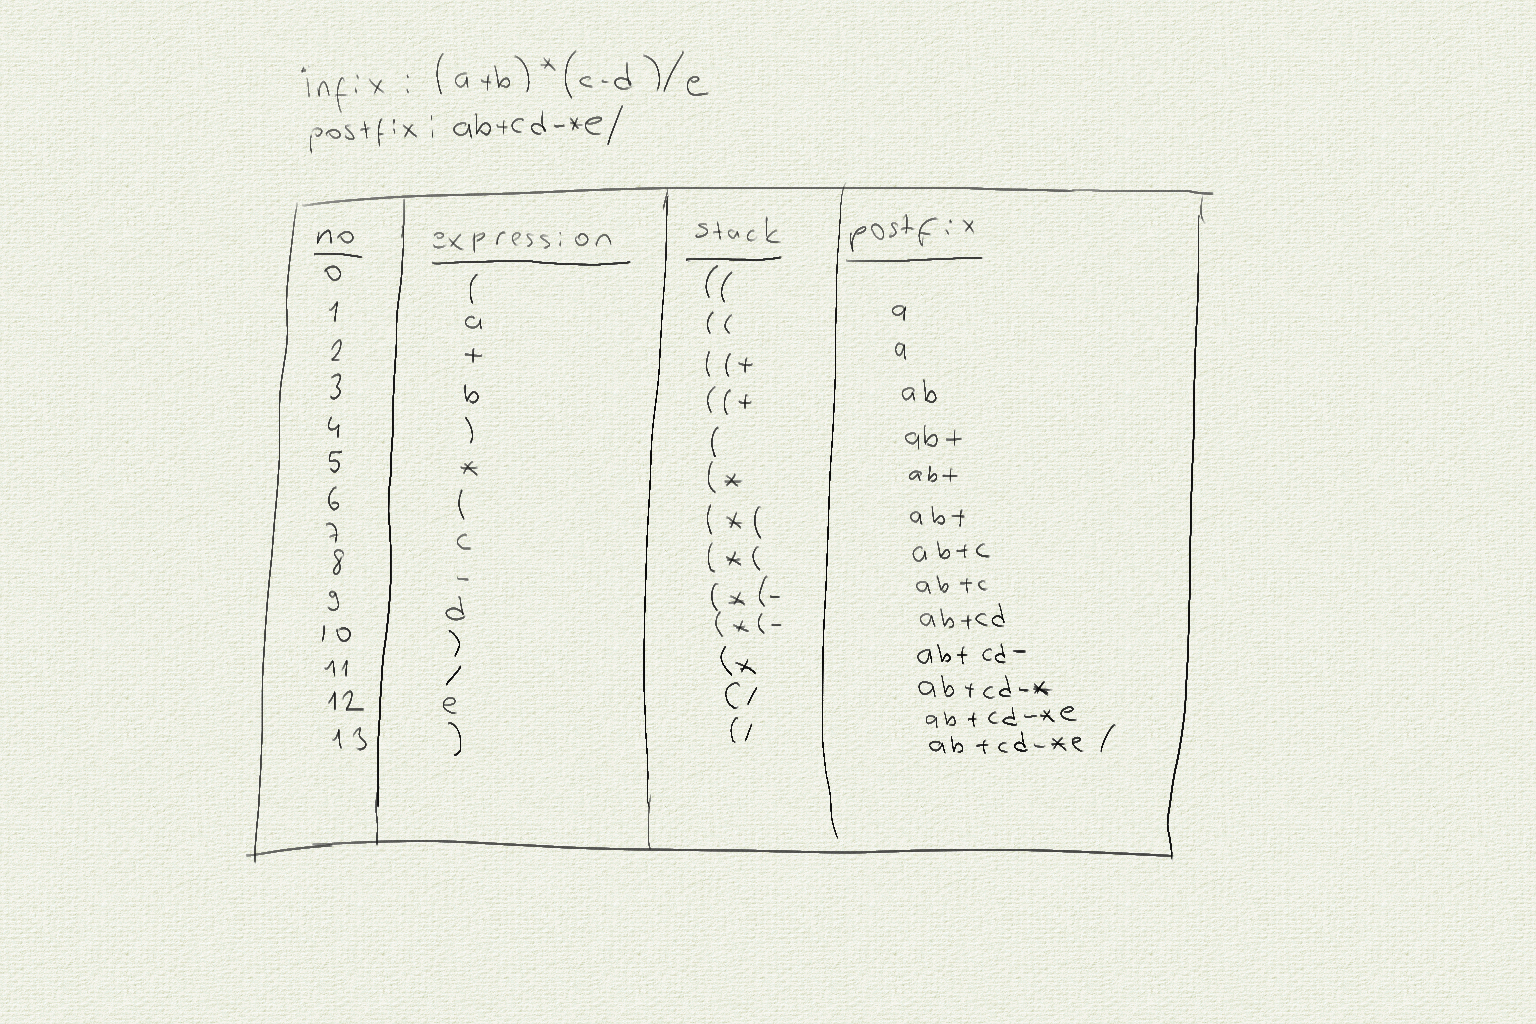 infix : (a+b)*(c-d)/e
postfix : ab+cd-*e/
no expression stack postfix
0 ( ((
1 a (( a
2 + ((+ a
3 b ((+ ab
4 ) ( ab+
5 * (* ab+
6 ( (*( ab+
7 c (*( ab+c
8 - (*(- ab+c
9 d (*(- ab+cd
10 ) (* ab+cd-
11 / (/ ab+cd-*
12 e (/ ab+cd-*e
13 ) ab+cd-*e/